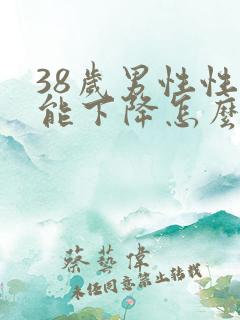 38歲男性性
能下降怎麼
蔡藝偉
未任同意禁止转载